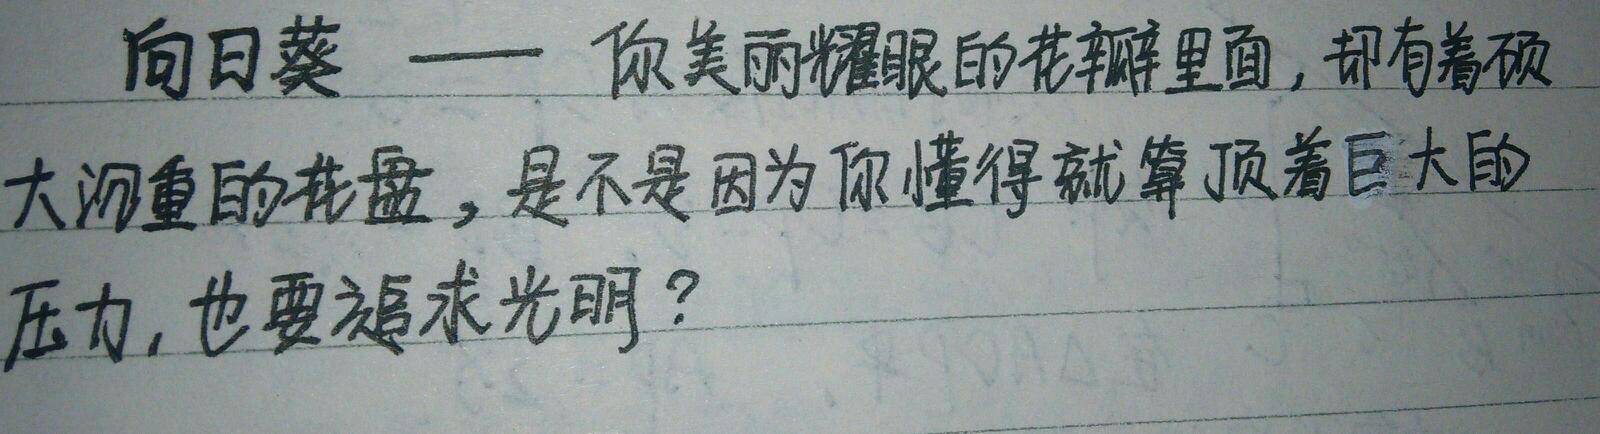 向日葵 —— 你美丽耀眼的花瓣里面，却有着硕
大沉重的花盘，是不是因为你懂得就算顶着巨大的
压力，也要追求光明？